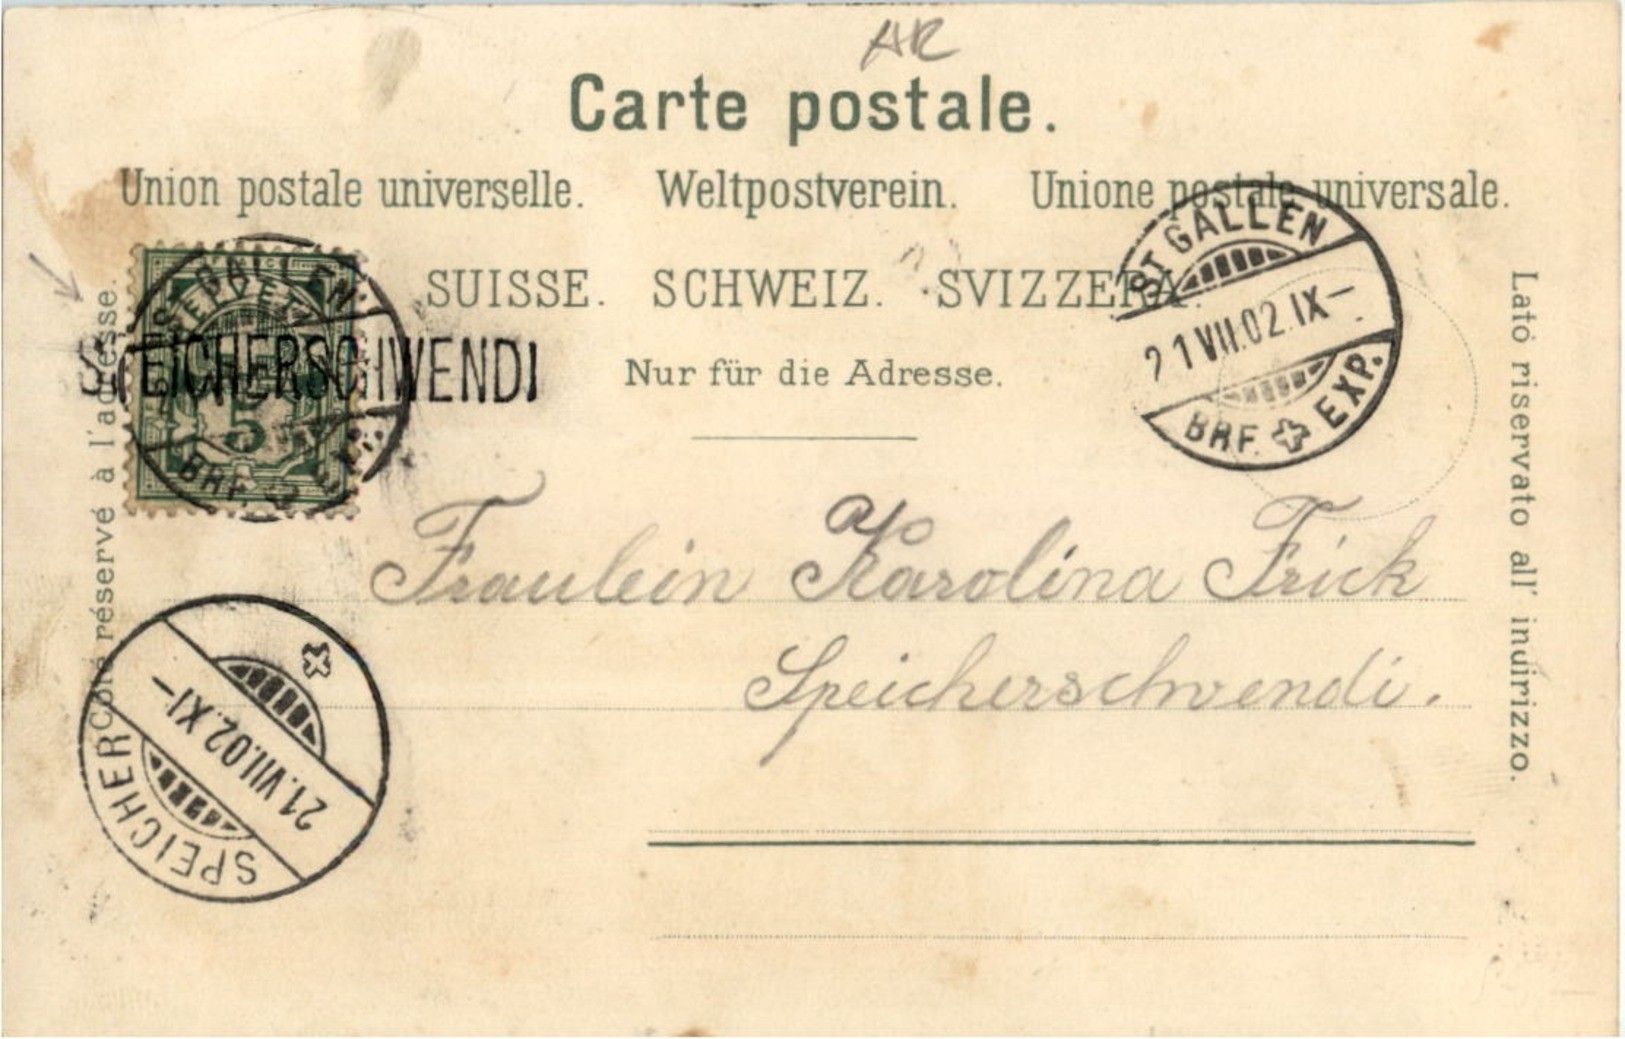 AR
Carte postale.
Union postale universelle. Weltpostverein. Unione postale universale.
SUISSE. SCHWEIZ. SVIZZERA.
Nur für die Adresse.
Côté réservé à l'adresse.
Lato riservato all' indirizzo.
ST. GALLEN
5
BRF. EXP.
SPEICHERSCHWENDI
ST GALLEN
21 VII.02.IX–
BRF. EXP.
Fraulein Karolina Frick
Speicherschwendi.
21.VII.02.XI–
SPEICHER